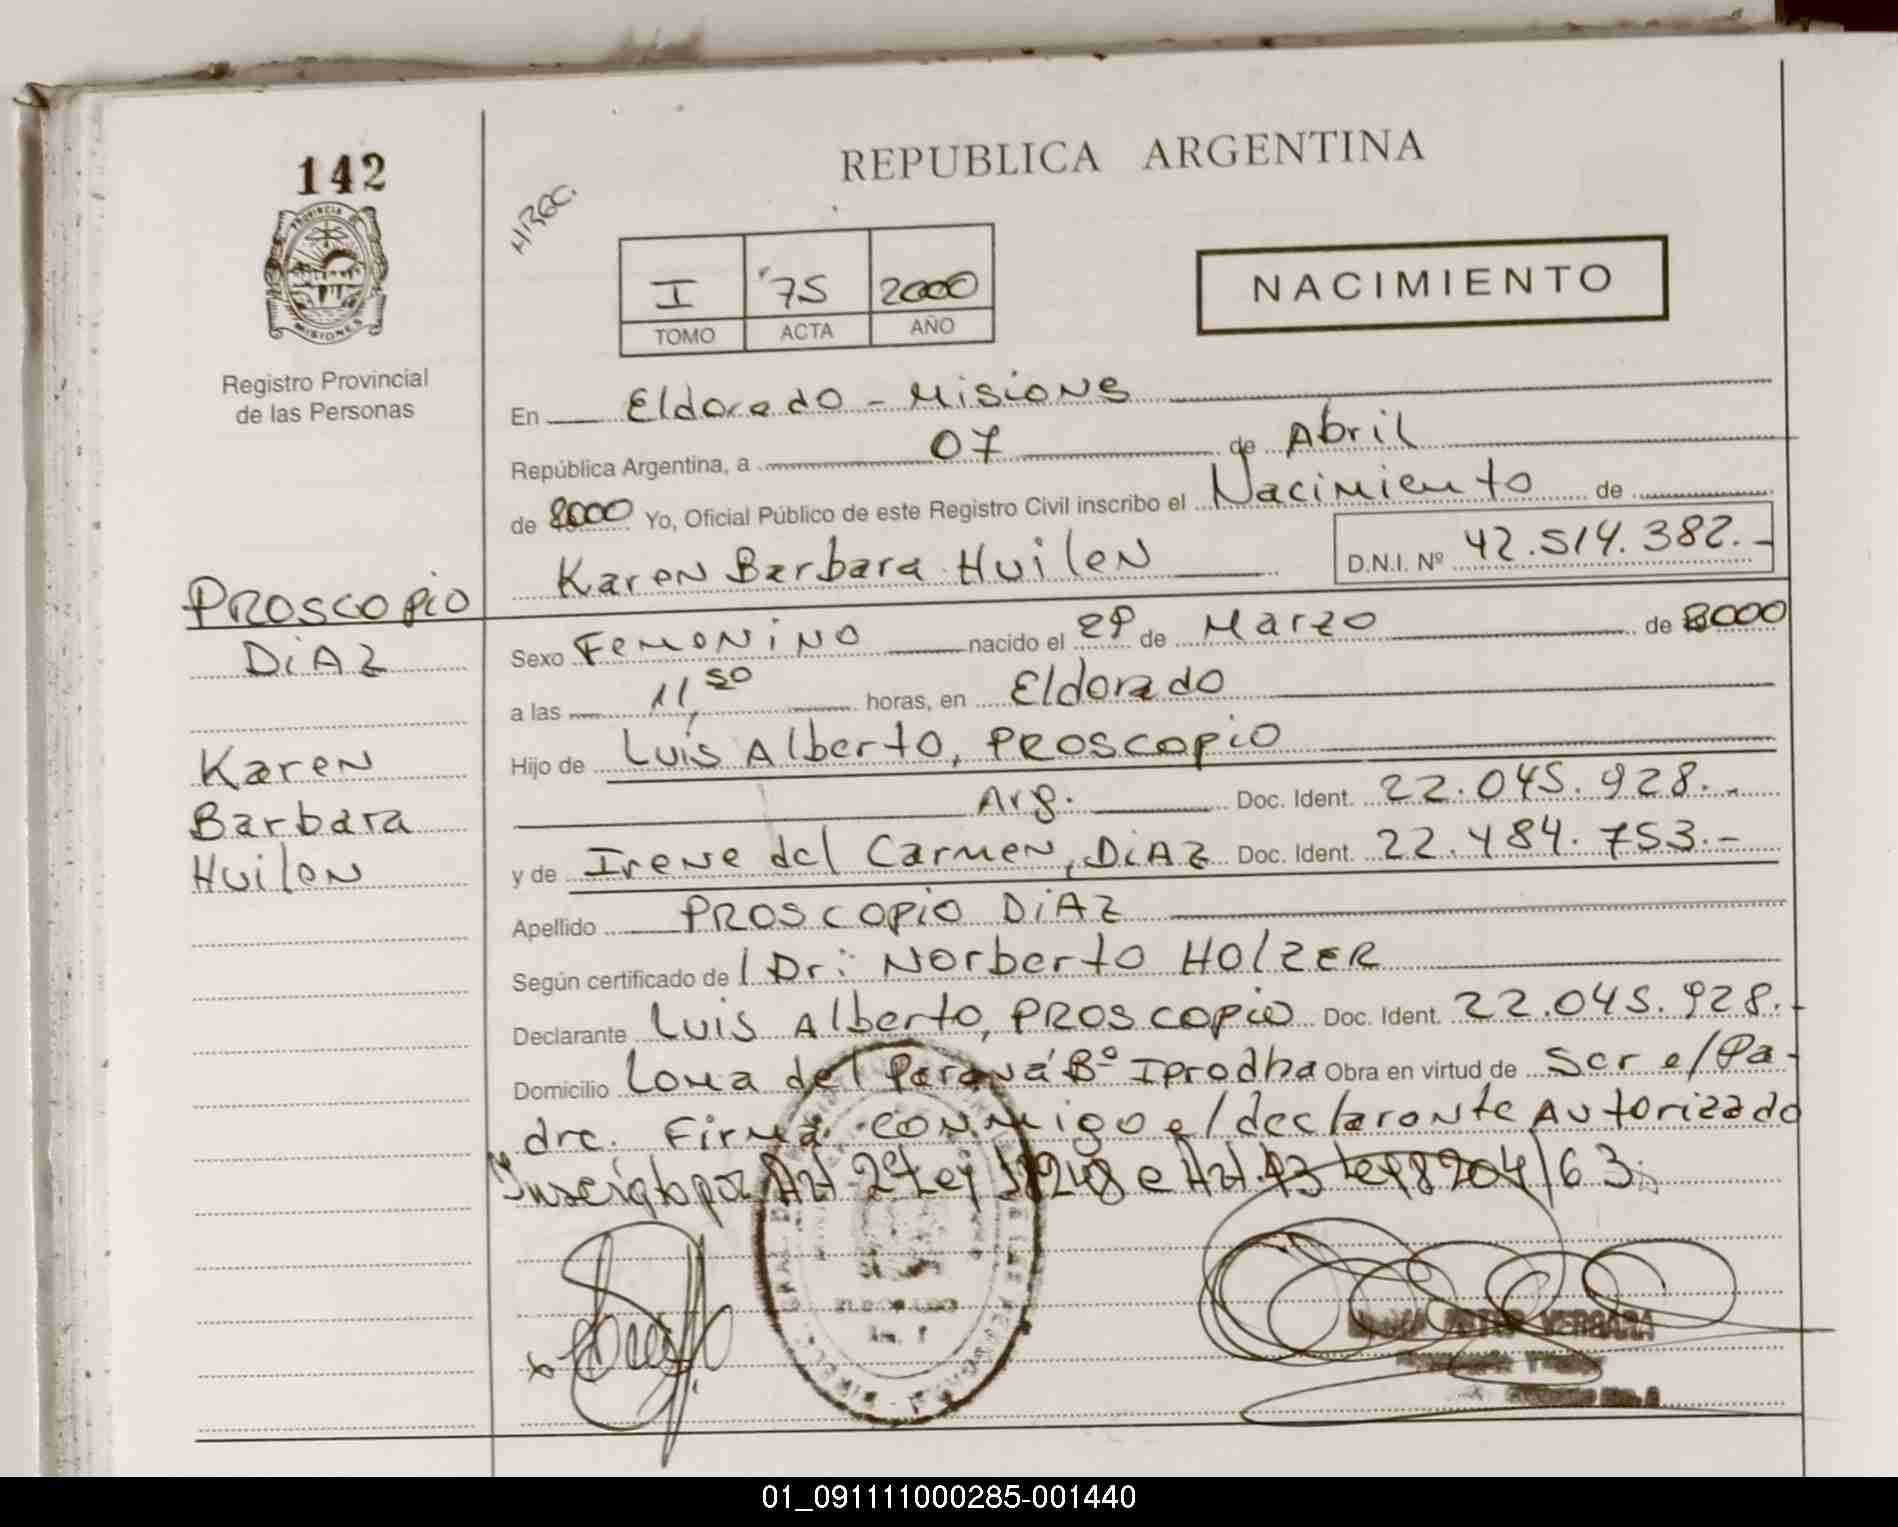 142
PROVINCIA DE
MISIONES
Registro Provincial
de las Personas
REPUBLICA ARGENTINA
I 75 2000
TOMO ACTA AÑO
NACIMIENTO
En Eldorado - Misiones
República Argentina, a 07 de Abril
de 2000 Yo, Oficial Público de este Registro Civil inscribo el Nacimiento de
Karen Barbara Huilen D.N.I. Nº 42.514.382.-
PROSCOPIO
DIAZ
Karen
Barbara
Huilen
Sexo Femenino nacido el 29 de Marzo de 2000
a las 11,50 horas, en Eldorado
Hijo de Luis Alberto, PROSCOPIO
Arg. Doc. Ident. 22.045.928.-
y de Irene del Carmen, DIAZ Doc. Ident. 22.484.753.-
Apellido PROSCOPIO DIAZ
Según certificado de Dr: Norberto HOLZER
Declarante Luis Alberto, PROSCOPIO Doc. Ident. 22.045.928.-
Domicilio Loma del Paraná Bº Iprodha Obra en virtud de Ser e/Pa-
dre. Firma conmigo e/declarante Autorizado
Inscripto por Art. 2º Ley 18248 e Art. 43 Ley 8204/63.
ELDORADO
VERGARA
01_091111000285-001440